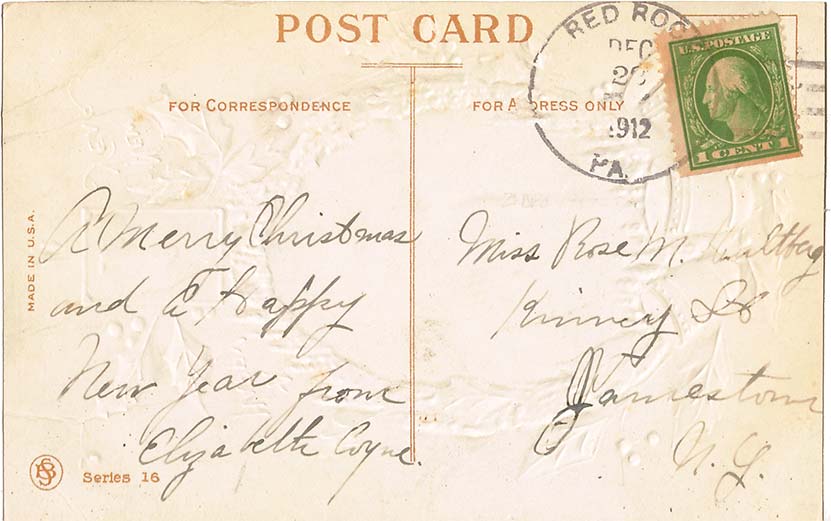 POST CARD
RED ROC
DEC
1912
PA.
U.S. POSTAGE
1 CENT 1
FOR CORRESPONDENCE
FOR ADDRESS ONLY
MADE IN U.S.A.
A Merry Christmas
and A Happy
New Year from
Elizabeth Coyne.
Miss Rose M.
Kinney St
Jamestown
N.Y.
Series 16